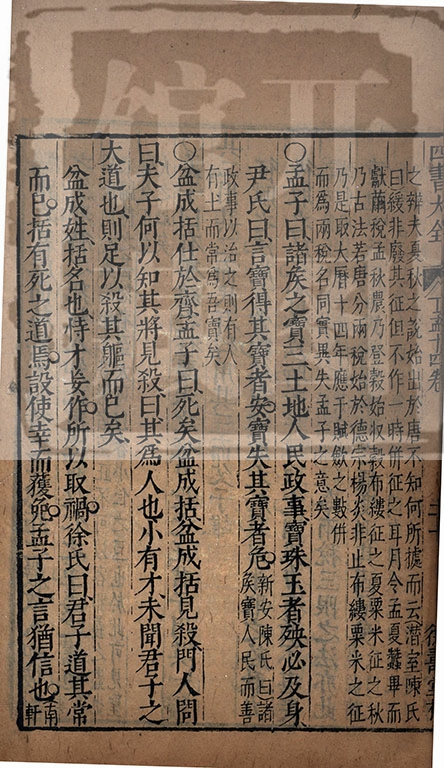 四書大全
之辨夫夏秋之説始出於唐不知何所據而云潛室陳氏
曰緩非廢其征但不作一時併征之耳月令孟夏蠶畢而
獻繭稅孟秋農乃登穀始收穀布縷征之夏粟米征之秋
乃古法若唐分兩稅始於德宗楊炎非止布縷粟米之征
乃是取大曆十四年應于賦斂之數併
而為兩稅名同實異失孟子之意矣
○孟子曰諸矦之寶三土地人民政事寶珠玉者殃必及身
尹氏曰言寶得其寶者安寶失其寶者危新安陳氏曰諸
矦寶人民而善
政事以治之則有人
有土而常為吾寶矣
○盆成括仕於齊孟子曰死矣盆成括盆成括見殺門人問
曰夫子何以知其將見殺曰其為人也小有才未聞君子之
大道也則足以殺其軀而已矣
盆成姓括名也恃才妄作所以取禍徐氏曰君子道其常
而已括有死之道焉設使幸而獲免孟子之言猶信也南
軒